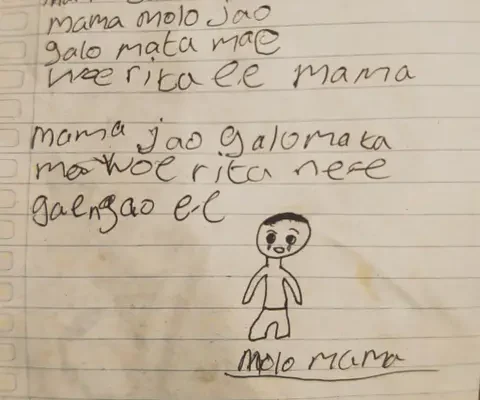 mama molo jao
galo mata mae
woe rita e.e mama
mama jao galo mata
woe rita nee
gae ngao e-e
molo mama